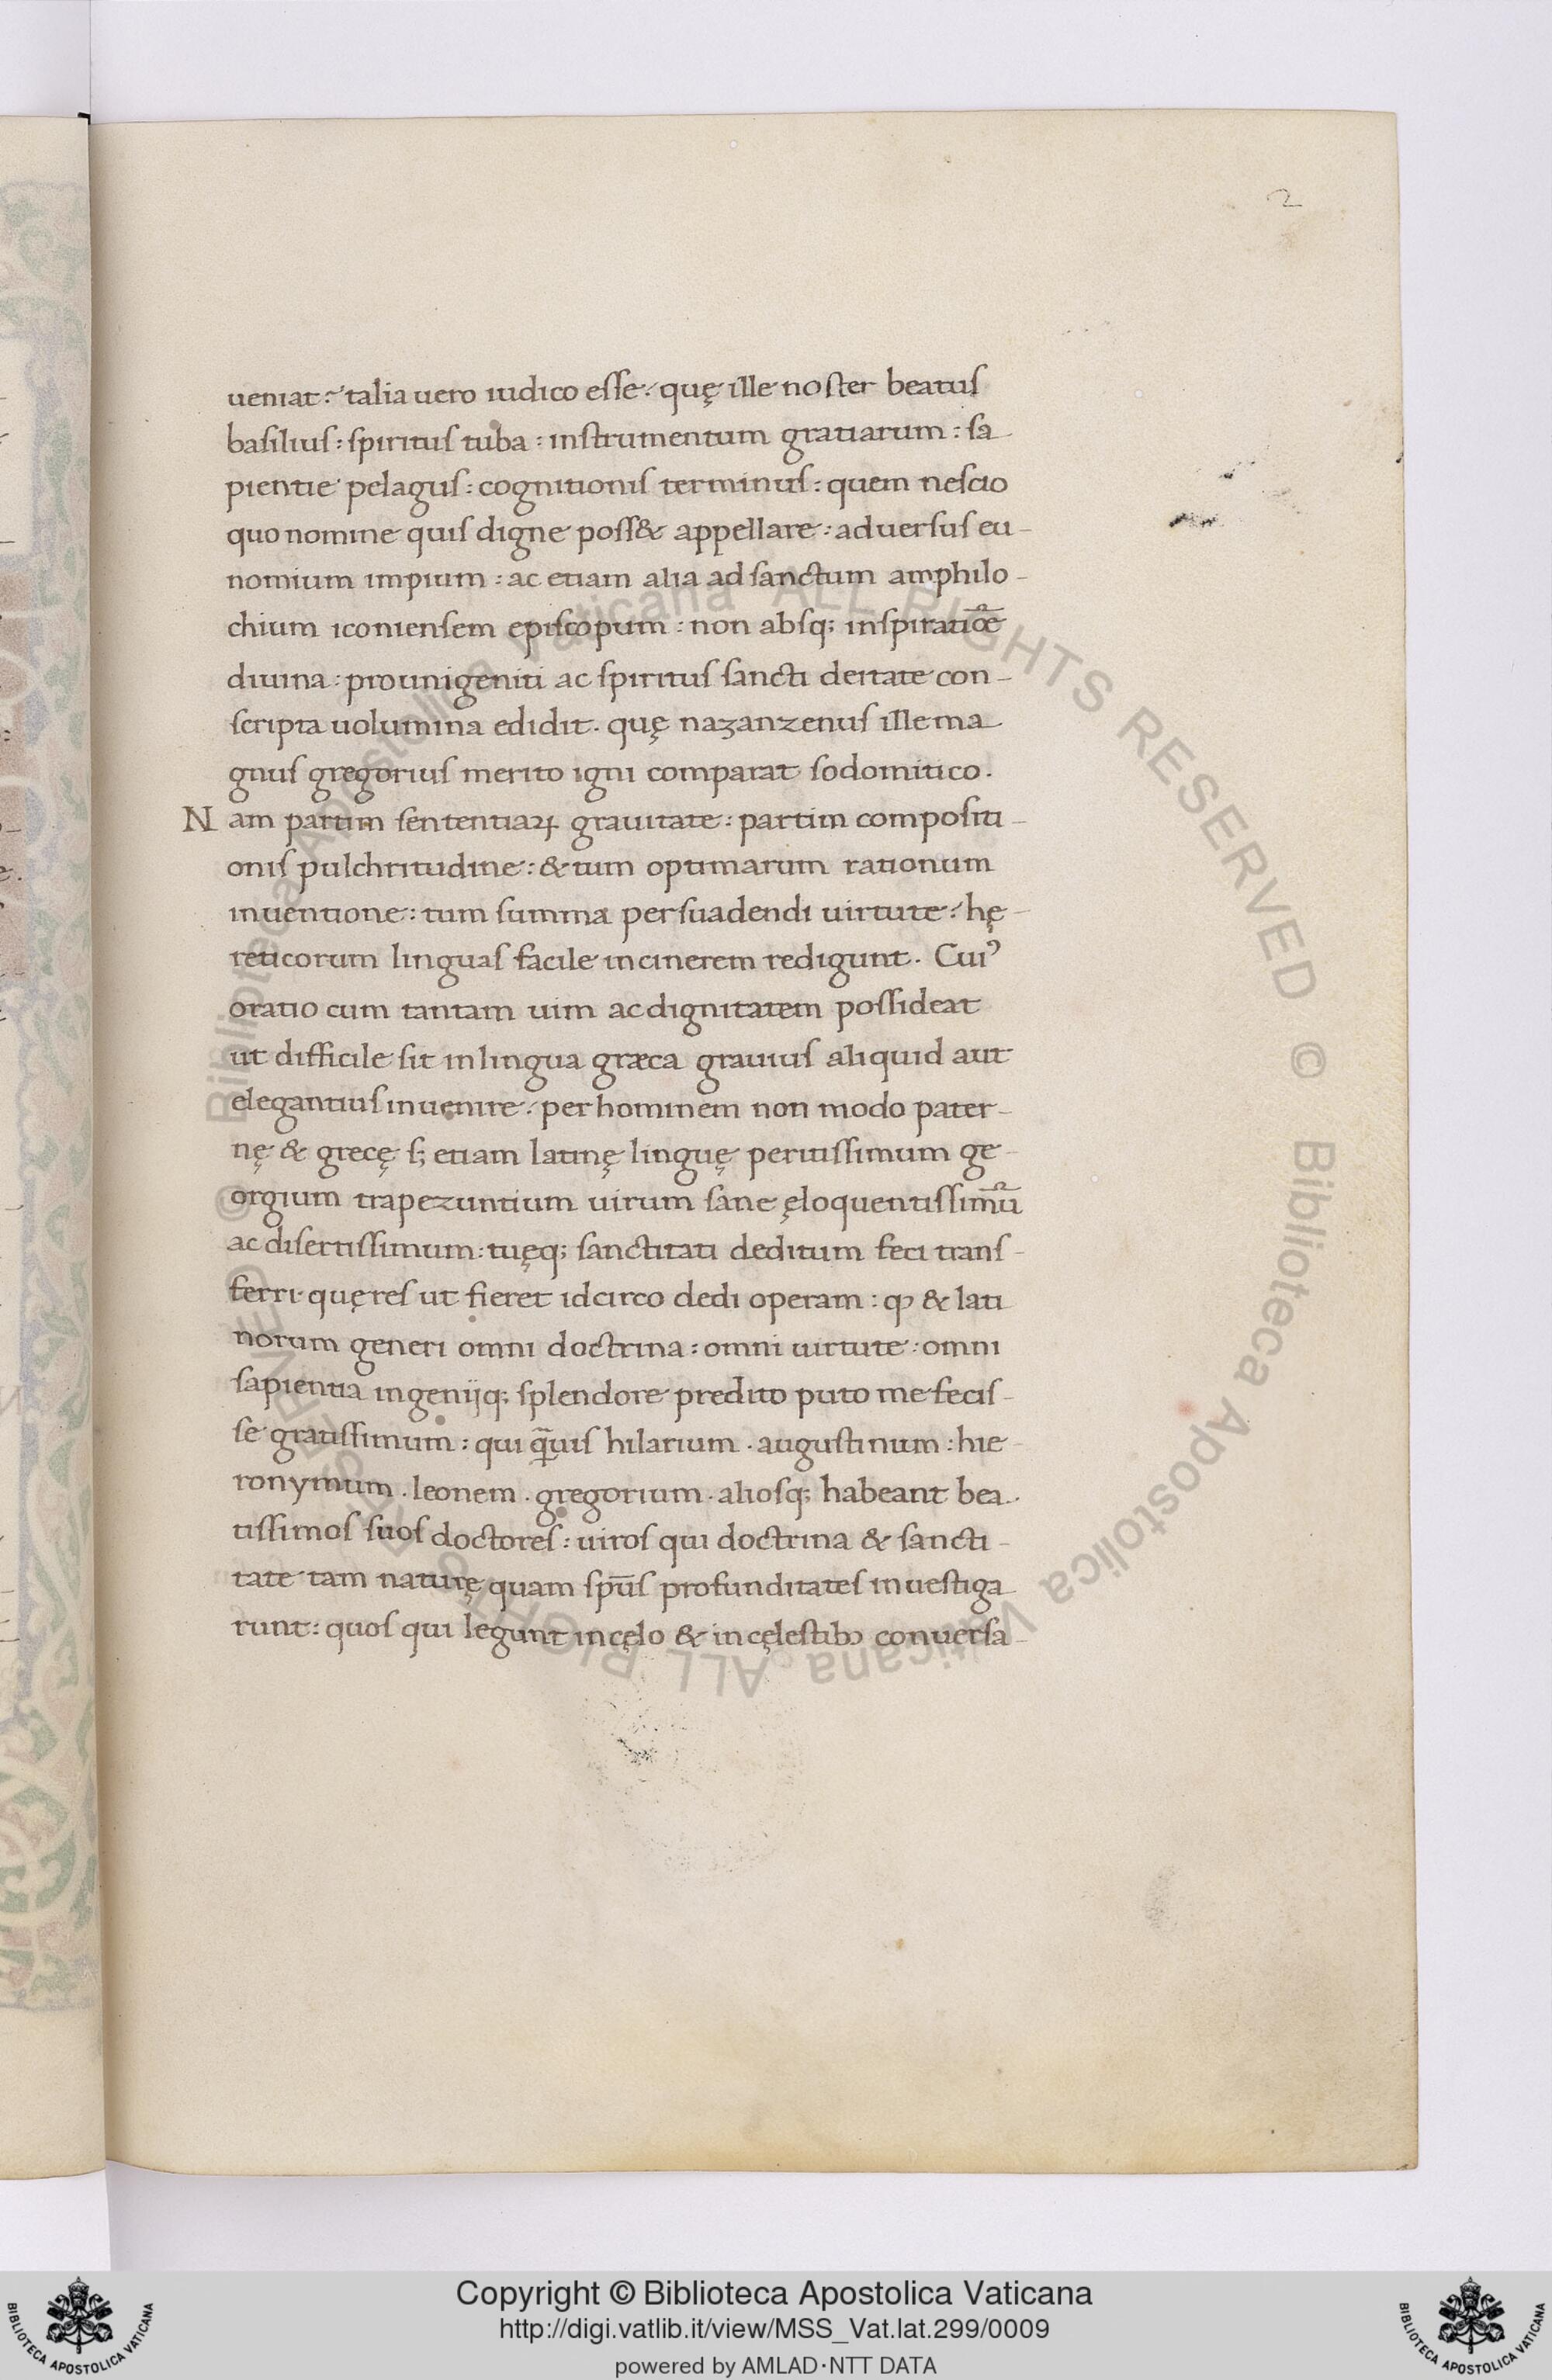 2
ueniat: talia uero iudico eſſe: quę ille noſter beatuſ
baſiliuſ: ſpirituſ tuba: inſtrumentum gratiarum: ſa
pientie pelaguſ: cognitioniſ terminuſ: quem neſcio
quo nomine quiſ digne poſſ& appellare: aduerſuſ eu-
nomium impium: ac etiam alia ad ſanctum amphilo-
chium iconienſem epiſcopum: non abſq; inſpiratiõe
diuina: pro unigeniti ac ſpirituſ ſancti deitate con-
ſcripta uolumina edidit. quę naʒanzenuſ ille ma
gnuſ gregoriuſ merito igni comparat ſodomitico.
Nam partim ſententiaꝝ grauitate: partim compoſiti-
oniſ pulchritudine: & tum optimarum rationum
inuentione: tum ſumma perſuadendi uirtute: hę-
reticorum linguaſ facile in cinerem redigunt. Cuiꝰ
oratio cum tantam uim ac dignitatem poſſideat
ut difficile ſit in lingua græca grauiuſ aliquid aut
elegantiuſ inuenire: per hominem non modo pater-
nę & grecę ſ; etiam latinę linguę peritiſſimum ge-
orgium trapezuntium uirum ſane ęloquentiſſimũ
ac diſertiſſimum: tuęq; ſanctitati deditum feci tranſ-
ferri. quę reſ ut fieret idcirco dedi operam: ꝙ & lati
norum generi omni doctrina: omni uirtute: omni
ſapientia ingenijq; ſplendore predito puto me feciſ-
ſe gratiſſimum: qui q̃uiſ hilarium. auguſtinum: hie-
ronymum. leonem. gregorium. alioſq; habeant bea.
tiſſimoſ ſuoſ doctoreſ: uiroſ qui doctrina & ſancti-
tate tam naturę quam ſpūſ profunditateſ inueſtiga
runt: quoſ qui legunt in cęlo & in cęleſtibꝫ conuerſa-
Biblioteca Apostolica Vaticana ALL RIGHTS RESERVED © Biblioteca Apostolica Vaticana ALL RIGHTS RESERVED ©
Copyright © Biblioteca Apostolica Vaticana
http://digi.vatlib.it/view/MSS_Vat.lat.299/0009
powered by AMLAD·NTT DATA
BIBLIOTECA APOSTOLICA VATICANA
BIBLIOTECA APOSTOLICA VATICANA